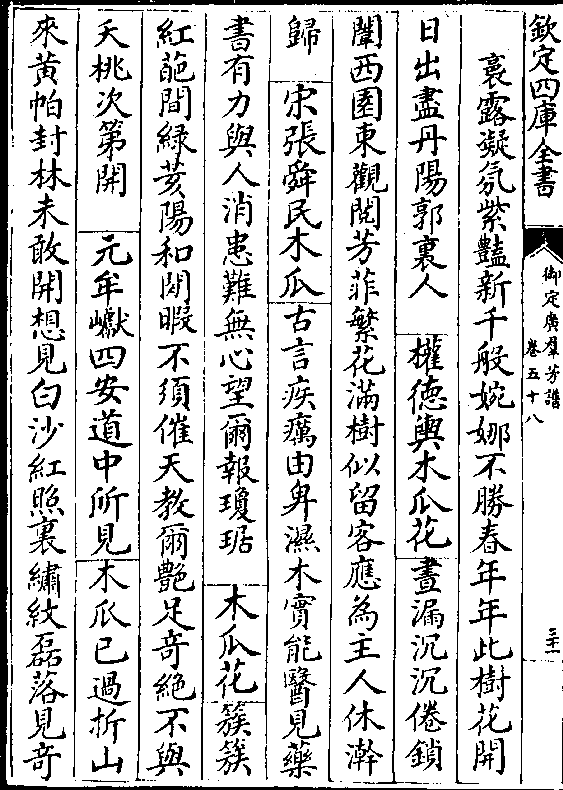 欽定四庫全書
御定廣羣芳譜
卷五十八
三十一
裛露凝氛紫豔新千般婉娜不勝春年年此樹花開
日出盡丹陽郭裏人 權德輿木瓜花 晝漏沉沉倦鎖
闈西園東觀閱芳菲繁花滿樹似留客應為主人休澣
歸 宋張舜民木瓜 古言疾癘由卑濕木實能醫見藥
書有力與人消患難無心望爾報瓊琚 木瓜花 簇簇
紅葩間綠荄陽和閒暇不須催天教爾艷足奇絕不與
夭桃次第開 元牟巘四安道中所見 木瓜已過折山
來黄帕封林未敢開想見白沙紅照裏繡紋磊落見奇